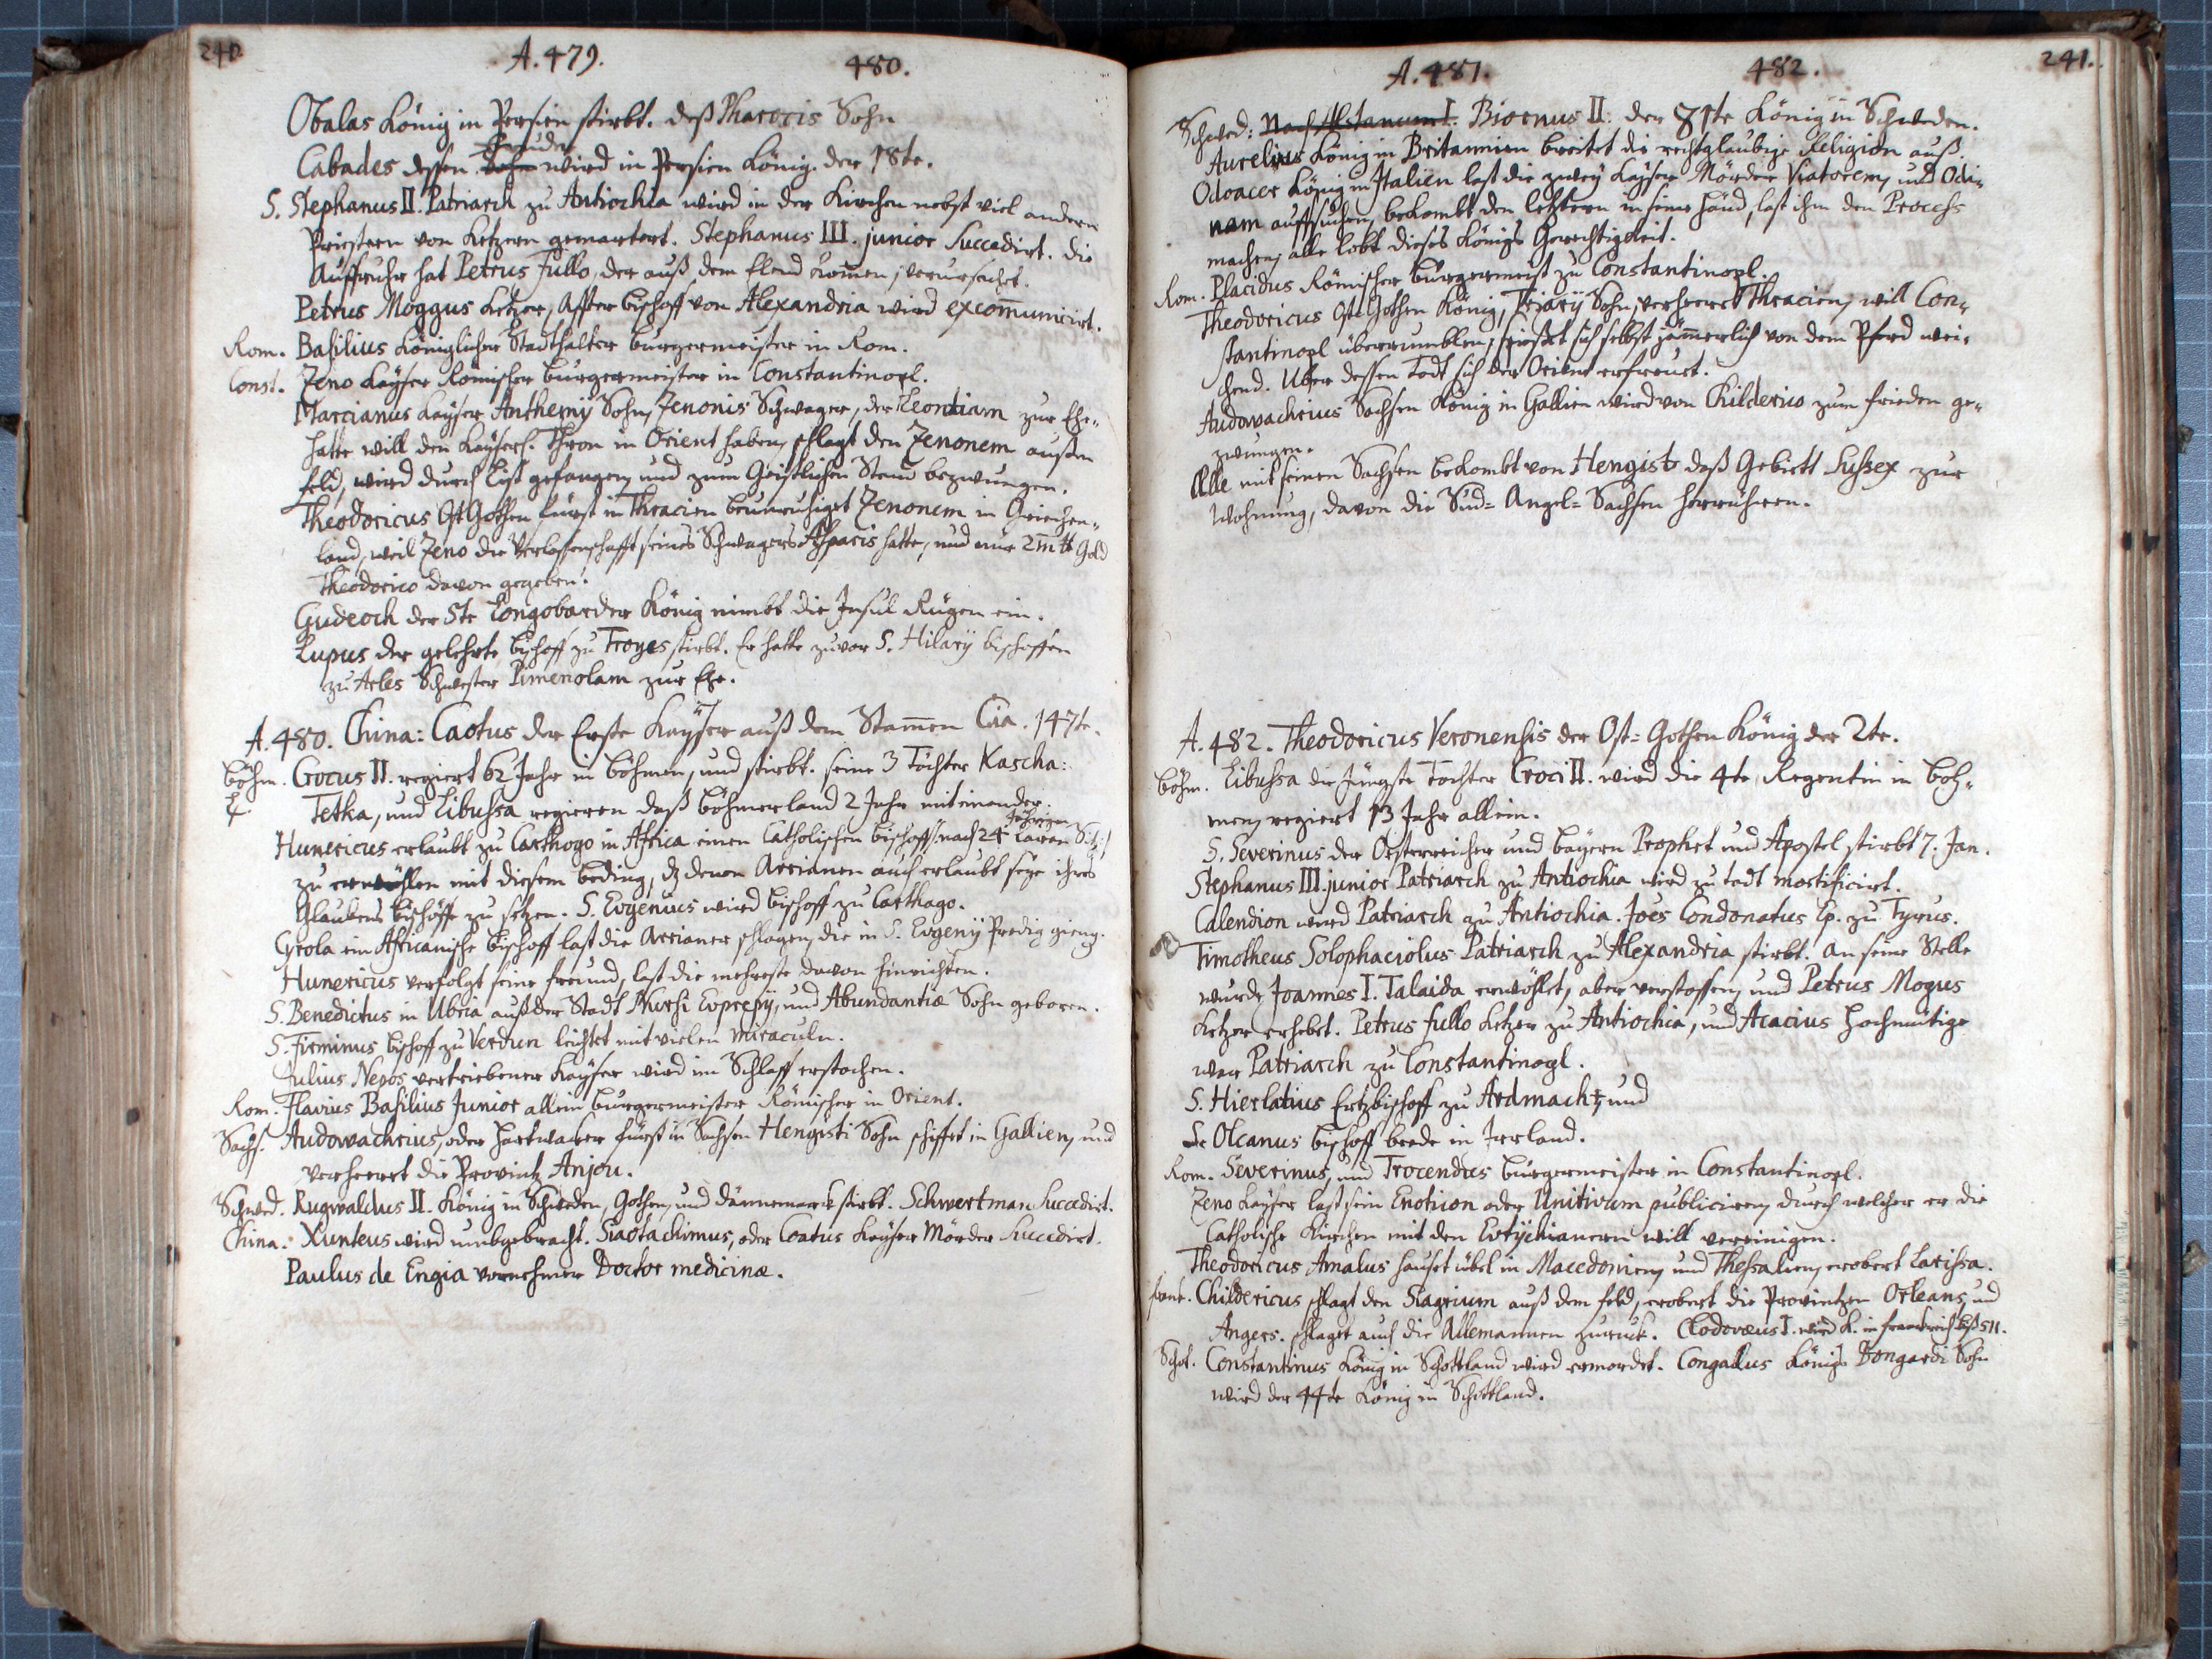 240. A. 479. 480.
Obalas König in Persien stirbt. deß Pharocis Sohn
Bruder
Cabades dessen Sohn wird in Persien König. der 18te.
S. Stephanus II. Patriarch zu Antiochia wird in der Kirchen nebst viel andern
Priestern von Ketzern gemartert. Stephanus III. junior Succedirt. die
Auffruhr hat Petrus Fullo, der auß dem Elend kom̅en, verursachet.
Petrus Moggus Ketzer, Affter bischoff von Alexandria wird excom̅unicirt.
Rom. Basilius Königlicher Stadthalter burgermeister in Rom.
Const. Zeno Kayser Römischer burgermeister in Constantinopl.
Marcianus Kayser Anthemij Sohn, Zenonis Schwager, der Leontiam zur Ehe
hatte will den Kayserl. Thron in Orient haben, schlagt den Zenonem außm
feld, wird durch List gefangen, und zum Geistlichen Stand bezwungen.
Theodoricus OstGothen fürst in Thracien beunruhiget Zenonem in Griechen-
land, weil Zeno die Verlassenschafft seines Schwagers Asparis hatte, und nur 2m ℔ Gold
Theodorico davon gegeben.
Gudeoch der 5te Longobarder König nimbt die Insul Rügen ein.
Lupus der gelehrte bischoff zu Troyes stirbt. Er hatte zuvor S. Hilarij bischoffen
zu Arles Schwester Pimenolam zur Ehe.
A. 480. China: Caotus der Erste Kayser auß dem Stam̅en Cia. 147te.
Böhm. Crocus II. regiert 62 Jahr in Böhmen, und stirbt. seine 3 Töchter Kascha:
Tetka, und Libussa regieren daß Böhmerland 2 Jahr miteinander.
Jährigen
Hunericus erlaubt zu Carthago in Africa einen Catholischen bischoff /: nach 24 Lairen Sitz :/
zu erwöhlen mit diesem beding, dz denen Arrianen auch erlaubt seye ihres
Glaubens bischöffe zu setzen. S. Eugenius wird bischoff zu Carthago.
Cyrola ein Africanische bischoff last die Arrianer schlagen, die in S. Eugenij Predig gieng.
Hunericus verfolgt seine freund, last die mehreste davon hinrichten.
S. Benedictus in Ubria auß der Stadt Nursi Euprepij, und Abundantiæ Sohn geboren.
S. Firminus bischoff zu Verdun leichtet mit vielen miraculn.
Julius Nepos vertriebener Kayser wird im Schlaff erstochen.
Rom. Flavius Basilius Junior allein burgermeister Römischer in Orient.
Sachs. Audowachrius, oder Hartwacker fürst in Sachsen Hengisti Sohn schiffet in Gallien, und
verheert die Provintz Anjou.
Schwed. Rugwaldus II. König in Schweden, Gothen, und Dännemarck stirbt. Schwertman Succedirt.
China. Xunteus wird umbgebracht. Siaotachimus, oder Coatus Kayser Mörder Succedirt.
Paulus de Engia vornehmer Doctor medicinæ.
A. 481. 482. 241.
Schwed: Nach Alstanum I. Biornus II. der 81te König in Schweden.
Aurelius König in Britannien breitet die rechtglaubige Religion auß.
Odoacer König in Italien last die zwey Kayser Mörder Viatorem, und Odi-
nam auffsuchen, bekombt den letztern in seine händ, last ihm den Process
machen, alle lobt dieses Königs Gerechtigkeit.
Rom. Placidus Römischer burgermeist zu Constantinopl.
Theodoricus OstGothen König, Triarij Sohn, verheeret Thracien, will Con-
stantinopl überrumblen, spiesset sich selbst jäm̅erlich von dem Pferd wei-
chend. Uber dessen Todt sich der Orient erfreuet.
Audowachrius Sachsen König in Gallien wird von Childerico zum frieden ge-
zwungen.
Ælle mit seinen Sachsen bekombt von Hengist daß Gebiett Sussex zur
Wohnung, davon die Sud- Angel- Sachsen herrühren.
A. 482. Theodoricus Veronensis der Ost-Gothen König der 2te.
Böhm. Libussa die jüngste Tochter Croci II. wird die 4te Regentin in Böh-
men, regiert 13 Jahr allein.
S. Severinus der Oesterreicher und Bayern Prophet und Apostel stirbt 7. Jan.
Stephanus III. junior Patriarch zu Antiochia wird zu todt mortificirt.
Calendion wird Patriarch zu Antiochia. Joes Condonatus Ep. zu Tyrus.
Timotheus Solophaciolus Patriarch zu Alexandria stirbt. an seine Stelle
wurde Joannes I. Talaida erwöhlet, aber verstossen, und Petrus Mogus
Ketzer erhebet. Petrus fullo Ketzer zu Antiochia, und Acacius hochmütige
war Patriarch zu Constantinopl.
S. Hierlatius Ertzbischoff zu Ardmach, und
S. Olcanus bischoff beede in Irrland.
Rom. Severinus, und Trocendus burgermeister in Constantinopl.
Zeno Kayser last sein Enotion oder Unitivum publiciren, durch welches er die
Catholische Kirchen mit den Eutychianern will vereinigen.
Theodoricus Amalus hauset übel in Macedonien, und Thessalien, erobert Larissa.
frank. Childericus schlagt den Siagrium auß dem feld, erobert die Provintzen Orleans, und
Angers. schlaget auch die Allemannen zuruck. Clodovæus I. wird K. in franckreich biß 511.
Schot. Constantinus König in Schottland wird ermordet. Congallus König Dongardi Sohn
wird der 44te König in Schottland.